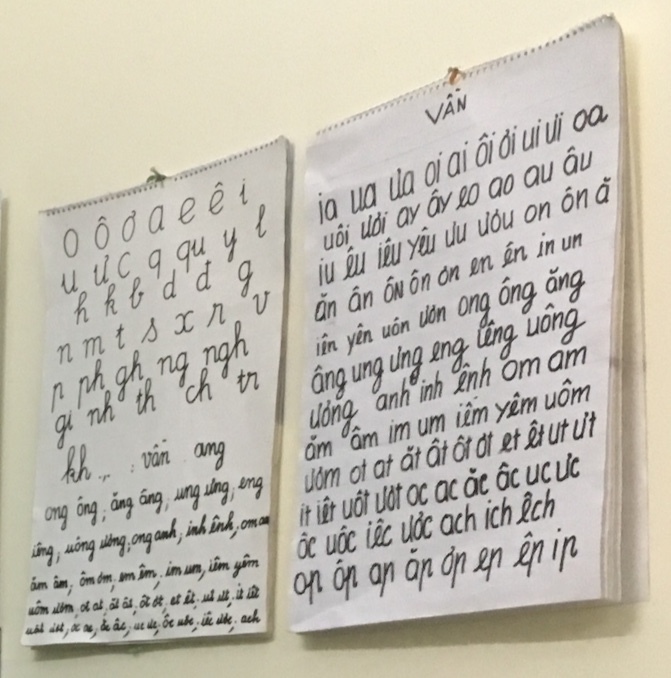 O Ô Ơ a e ê i
u ư c q qu y l
h k b d đ g
n m t s x r v
p ph gh ng ngh
gi nh th ch tr
kh... : vần ang
ong ông, ăng âng, ung ưng, eng
iêng, uông ương, ong anh, inh ênh, om am
ăm âm, ôm ơm, em êm, im um, iêm yêm
uôm ươm, ot at, ăt ât, ôt ơt, et êt, ut ưt, it iêt
uôt ươt, oc ac, ăc âc, uc ưc, ôc uôc, iêc ươc, ach
VẦN
ia ua ưa oi ai ôi ơi ui ưi oa
uôi ươi ay ây eo ao au âu
iu êu iêu yêu ưu ươu on ôn ă
ăn ân ôn ôn ơn en ên in un
iên yên uôn ươn ong ông ăng
âng ung ưng eng iêng uông
ương anh inh ênh om am
ăm âm im um iêm yêm uôm
ươm ot at ăt ât ôt ơt et êt ut ưt
it iêt uôt ươt oc ac ăc âc uc ưc
ôc uôc iêc ươc ach ich êch
op ôp ap ăp ơp ep êp ip